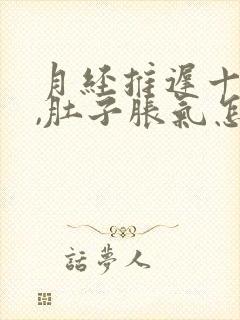 月经推遲十
,肚子脹氣怎
話夢人